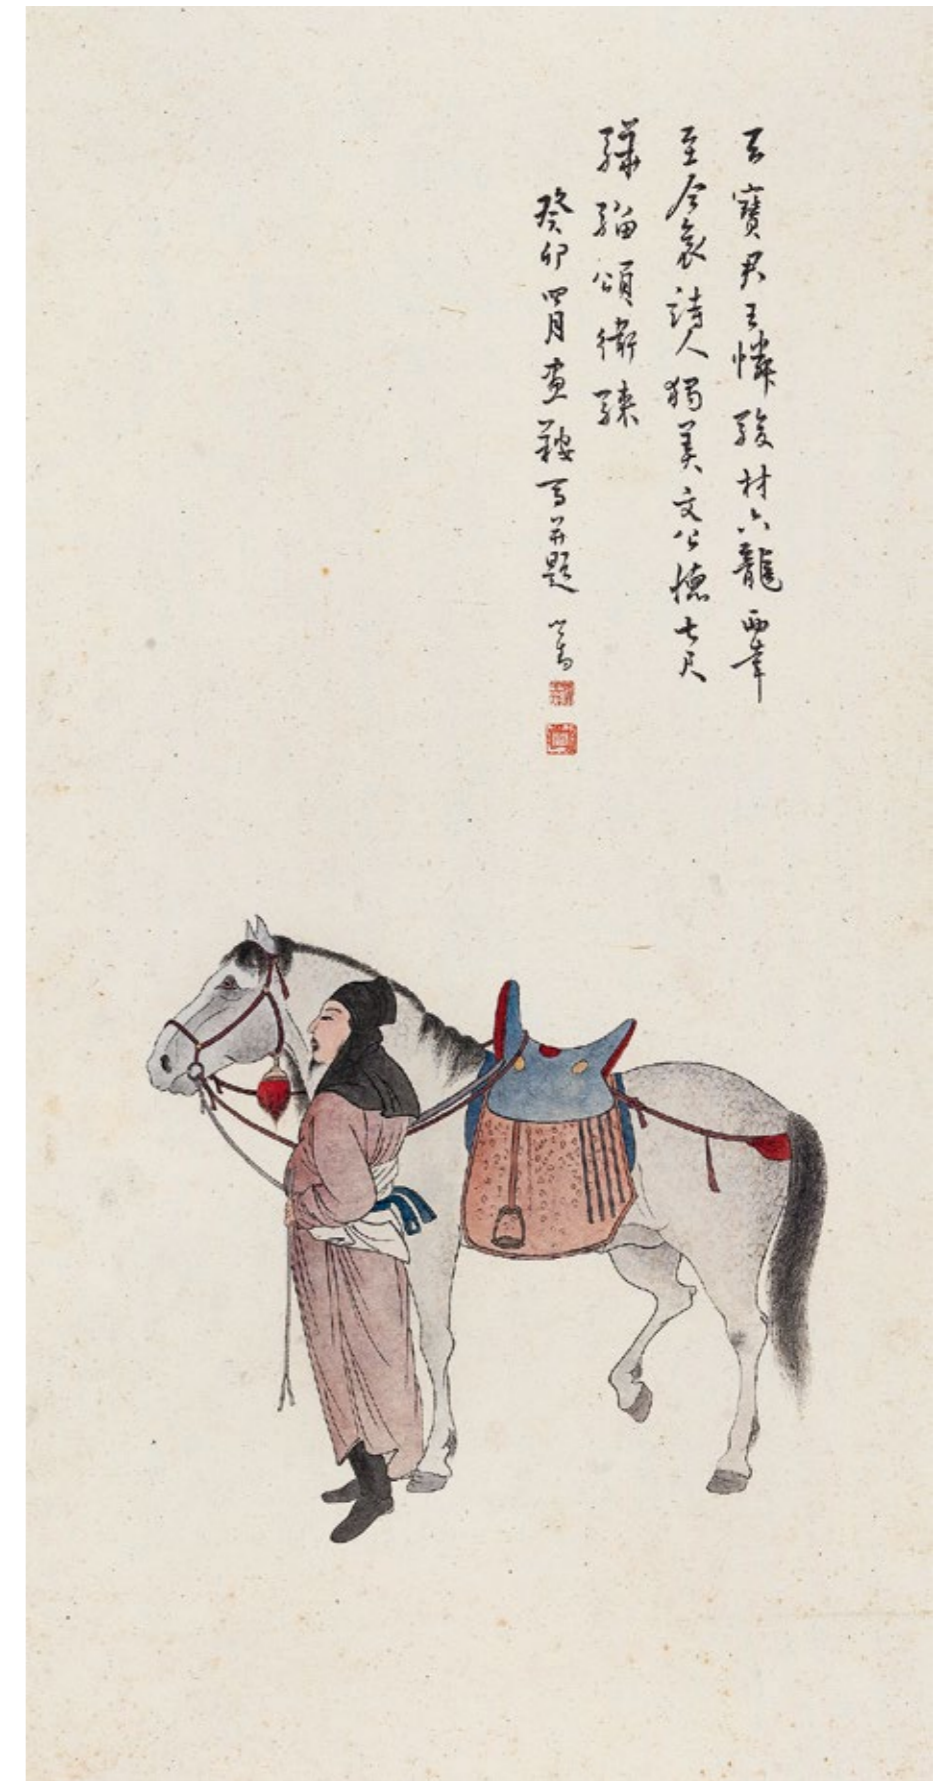 天寶君王憐駿材六龍西幸
至今哀詩人獨美文公德七尺
騋騮頌衛騋
癸卯四月畫鞍馬并題 心畬